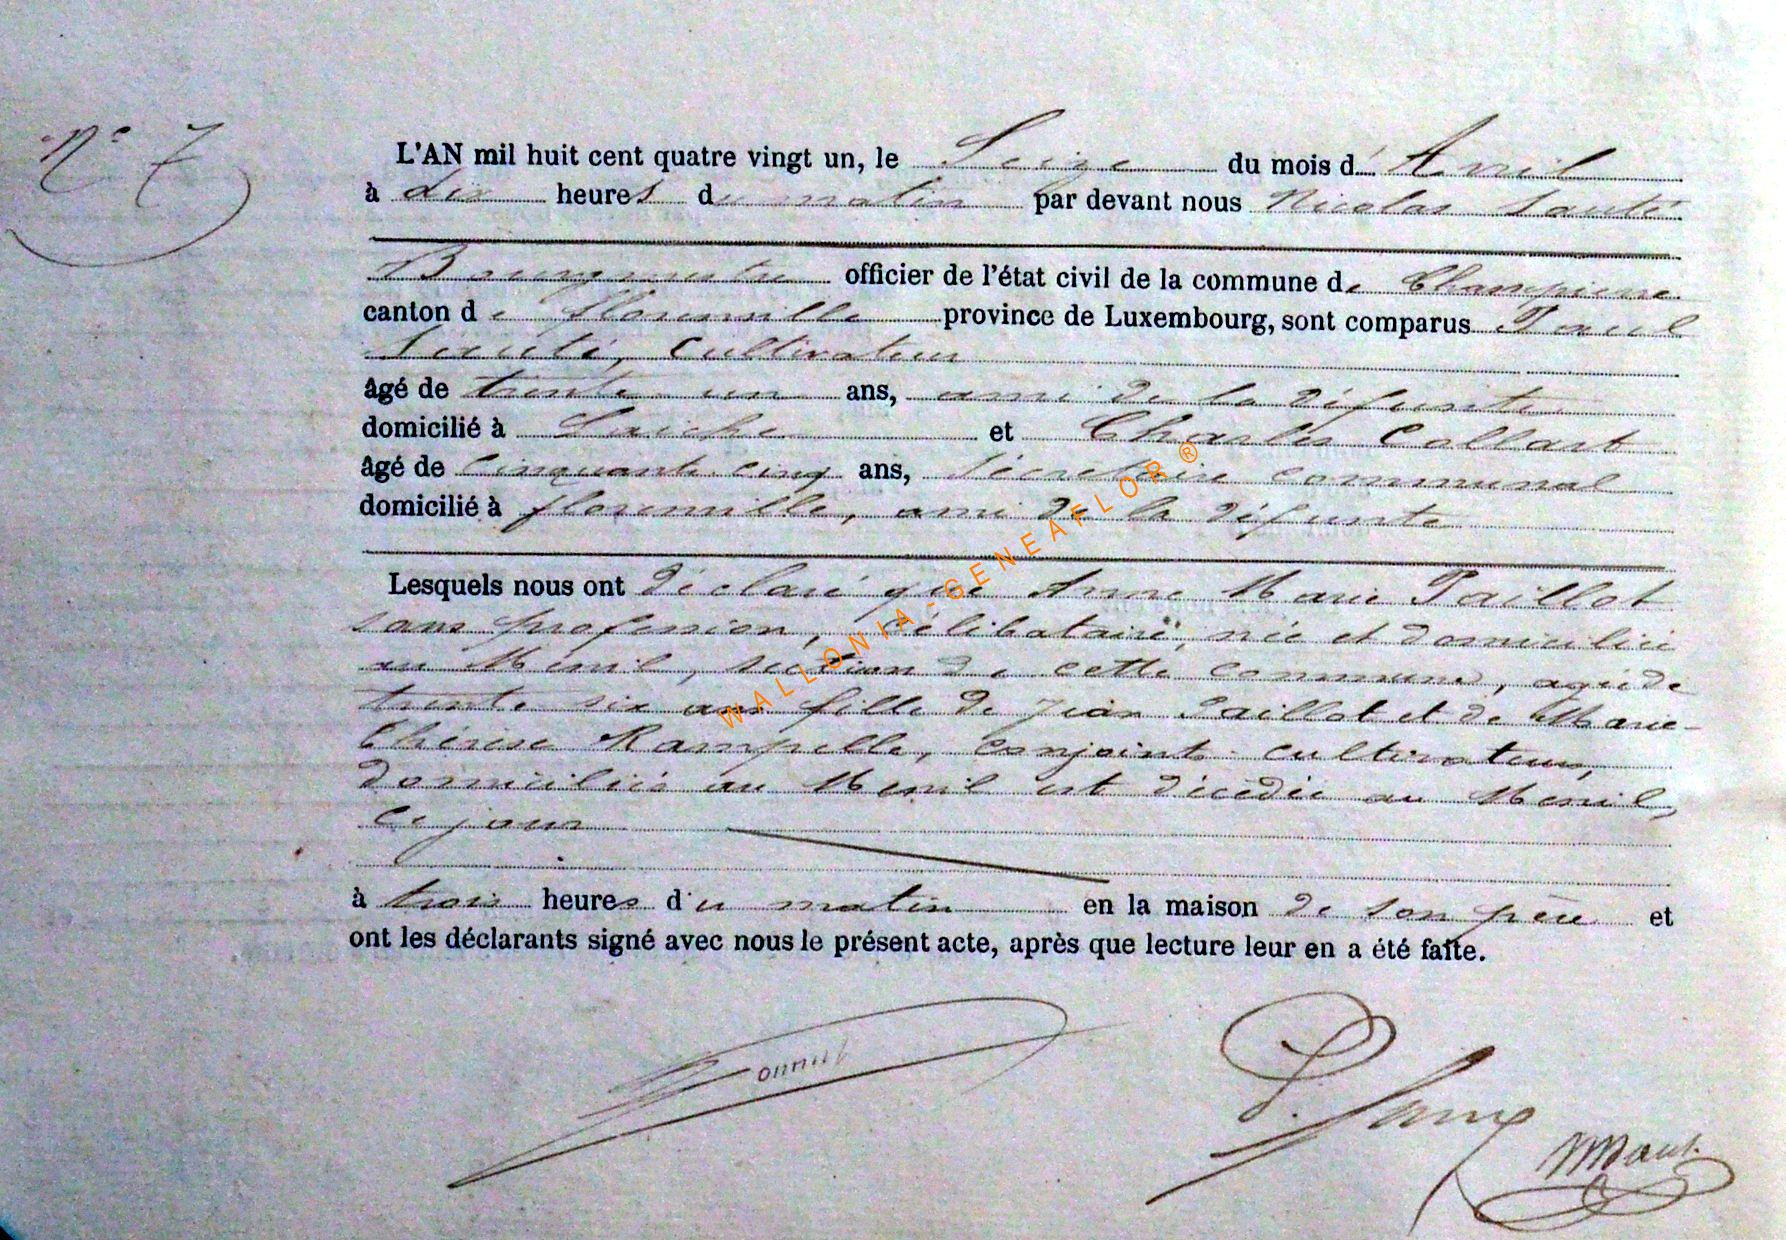 N° 7
L'AN mil huit cent quatre vingt un, le Seize du mois d'Avril
à dix heures du matin par devant nous Nicolas Sauté
Bourgmestre officier de l'état civil de la commune de
canton de florenville province de Luxembourg, sont comparus Paul
Sauté, Cultivateur
âgé de trente un ans, ami de la défunte
domicilié à Laiche et Charles Collart
âgé de cinquante cinq ans, Sécretaire communal
domicilié à florenville, ami de la défunte
Lesquels nous ont déclaré que Anne Marie Paillot
sans profession, célibataire, née et domiciliée
au Menil, section de cette commune, agée de
trente six ans fille de Jean Paillot et de Marie-
Thérèse Rampelle, conjoints cultivateurs,
domiciliés au Menil est décédée au Menil,
ce jour
à trois heures du matin en la maison de son père et
ont les déclarants signé avec nous le présent acte, après que lecture leur en a été faite.
WALLONIA-GENEAFLOR®